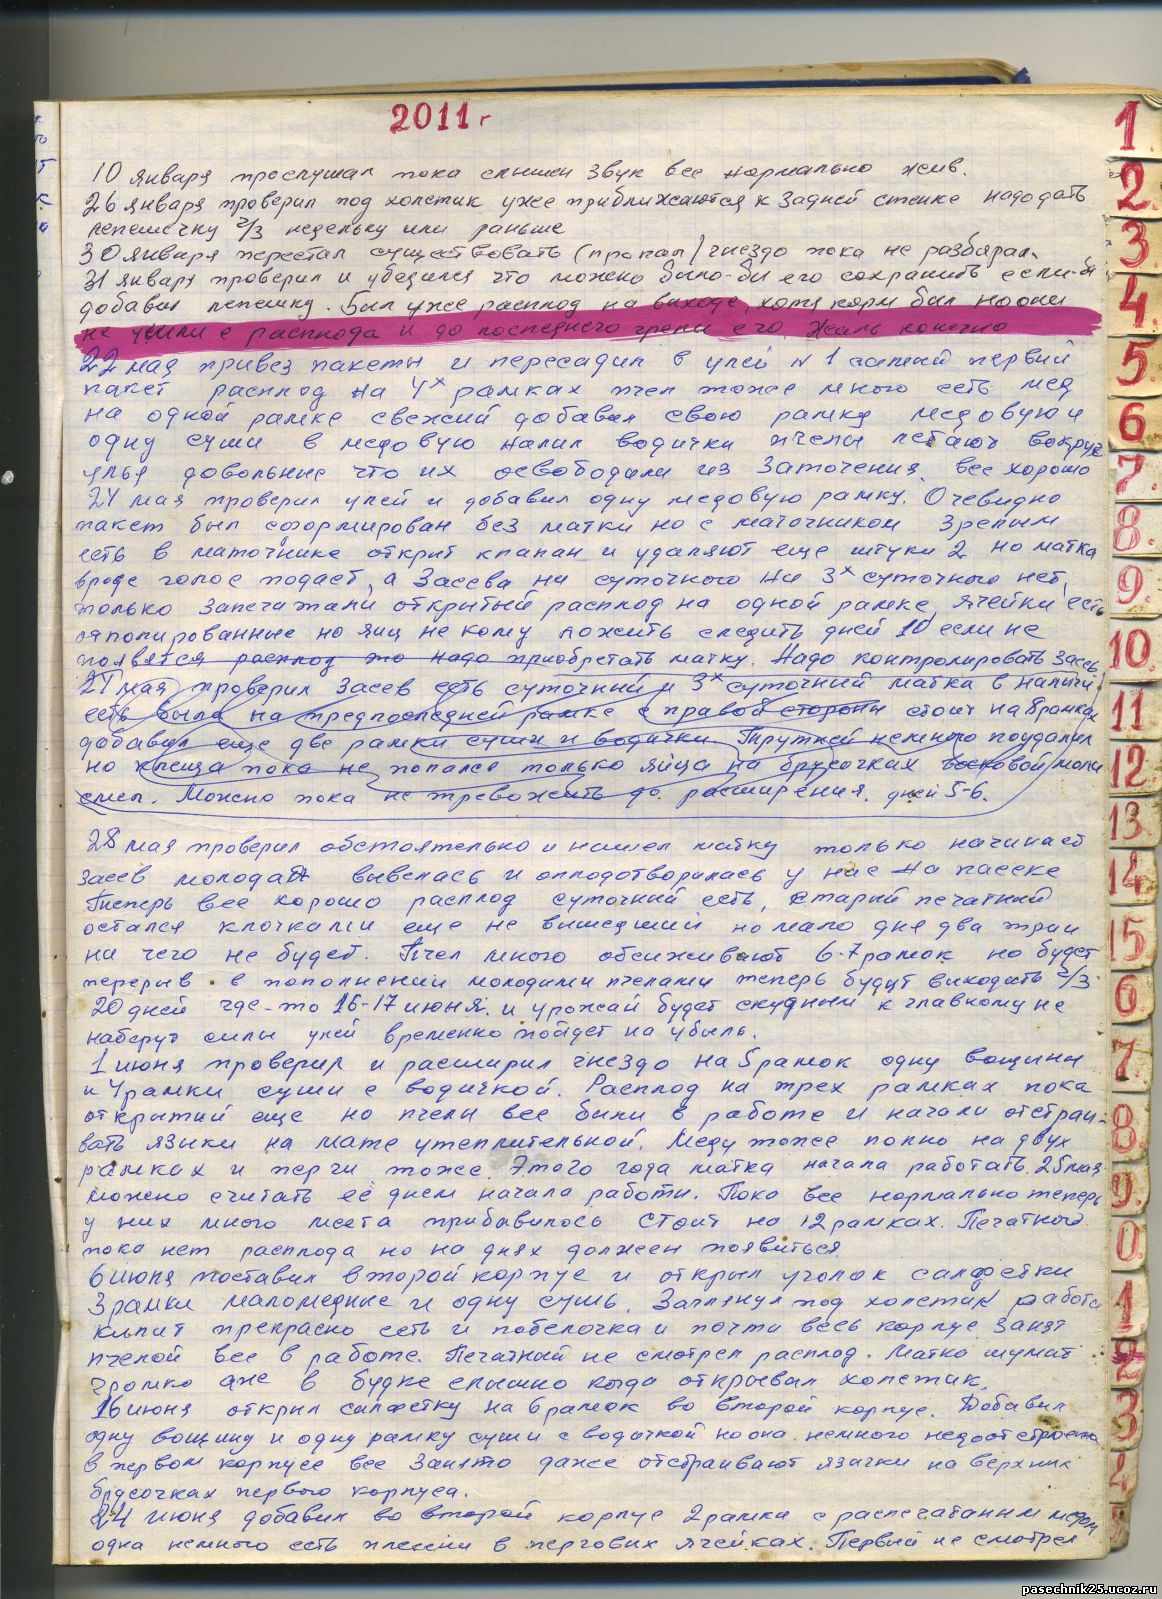 2011г
10 января прослушал пока слышен звук все нормально жив.
26 января проверил под холстик уже приближаются к задней стенке надо дать
лепешечку ч/з недельку или раньше
30 января перестал существовать (пропал) гнездо пока не разбирал.
31 января проверил и убедился что можно было-бы его сохранить если-бы
добавил лепешку. Был уже расплод на выходе, хотя корм был но они
не ушли с расплода и до последнего грели его. Жаль конечно
22 мая привез пакеты и пересадил в улей №1 самый первый
пакет расплод на 4х рамках пчел тоже много есть мед
на одной рамке свежий добавил свою рамку медовую и
одну суши в медовую налил водички пчелы летают вокруг
улья довольные что их освободили из заточения. все хорошо
24 мая проверил улей и добавил одну медовую рамку. Очевидно
пакет был сформирован без матки но с маточником зрелым
есть в маточнике открыт клапан и удаляют еще штуки 2 но матка
вроде голос подает, а засева ни суточного ни 3х суточного нет,
только запечатали открытый расплод на одной рамке, ячейки есть
отполированные но яиц не кому ложить следить дней 10 если не
появятся расплод то надо приобретать матку. Надо контролировать засев.
27 мая проверил засев есть суточный и 3х суточный матка в наличии
есть была на предпоследней рамке с правой стороны стоит на 8 рамках
добавил еще две рамки суши и водички. Трутней немного поудалял
но клеща пока не попался только яйца на брусочках восковой моли
смел. Можно пока не тревожить до расширения. дней 5-6.
28 мая проверил обстоятельно и нашел матку только начинает
засев молодая вывелась и оплодотворилась у нас на пасеке
Теперь все хорошо расплод суточный есть, старый печатный
остался клочками еще не вышедший но мало дня два три и
ни чего не будет. Пчел много обсиживают 6-7 рамок но будет
перерыв в пополнении молодыми пчелами теперь будут выходить ч/з
20 дней где-то 16-17 июня. и урожай будет скудным к главному не
наберут силы улей временно пойдет на убыль.
1 июня проверил и расширил гнездо на 5 рамок одну вощины
и 4 рамки суши с водичкой. Расплод на трех рамках пока
открытый еще но пчелы все были в работе и начали отстраи-
вать языки на мате утеплительной. Меду тоже полно на двух
рамках и перги тоже. Этого года матка начала работать. 25 мая
можно считать её днем начала работы. Пока все нормально теперь
у них много места прибавилось стоит на 12 рамках. Печатного
пока нет расплода но на днях должен появиться.
6 июня поставил второй корпус и открыл уголок салфетки
3 рамки маломедные и одну сушь. Заглянул под холстик работа
кипит прекрасно есть и побелочка и почти весь корпус занят
пчелой все в работе. Печатный не смотрел расплод. Матка шумит
громко аж в будке слышно когда открывал холстик.
16 июня открыл салфетку на 6 рамок во второй корпус. Добавил
одну вощину и одну рамку суши с водичкой но она немного недоотстроена
в первом корпусе все занято даже отстраивают язычки на верхних
брусочках первого корпуса.
24 июня добавил во второй корпус 2 рамки с распечатанным медом
одна немного есть плесени в перговых ячейках. Первый не смотрел
1.
2.
3
4.
5
6
7.
8.
9.
10.
11
12
13
14
15
6
7.
8
9.
0.
1
2
3
pasechnik25.ucoz.ru